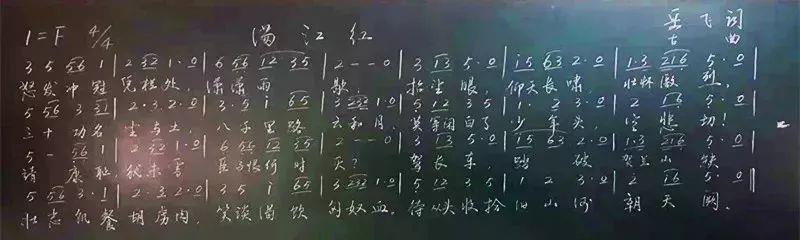 1=F 4/4 满江红 岳飞词
古曲
3 5 56 1 | 2 32 1·0 | 6 56 12 35 | 2 - - 0 | 3 13 5·0 | i5 63 2·0 | 1·3 216 5·0
怒发冲冠 凭栏处, 潇潇雨 歇, 抬望眼, 仰天长啸, 壮怀激烈,
5 56 3 21 | 2·3·2·0 | 3·5 i 65 | 3 232 1·0 | 5 12 3 5 | 1· 2 3·0 | 2 16 5·0
三十功名 尘与土, 八千里路 云和月, 莫等闲白了 少年头, 空悲切!
5 - 56 1 | 2 32 1·0 | 6 56 12 35 | 2 - - 0 | 3 13 5·0 | 15 63 2·0 | 1·3 216 5·0
靖康耻, 犹未雪 臣子恨何时 灭? 驾长车, 踏破 贺兰山缺
5 556 3·1 | 2·3 2·0 | 3 5 i 65 | 3 232 1·0 | 5 12 3 5 | 1 2 3·0 | 2 16 5·0
壮志饥餐 胡虏肉, 笑谈渴饮 匈奴血, 待从头收拾 旧山河 朝天阙.